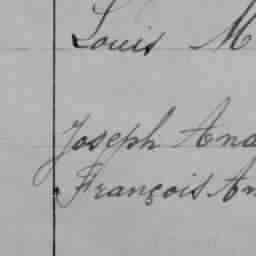 Louis M
Joseph And
François An